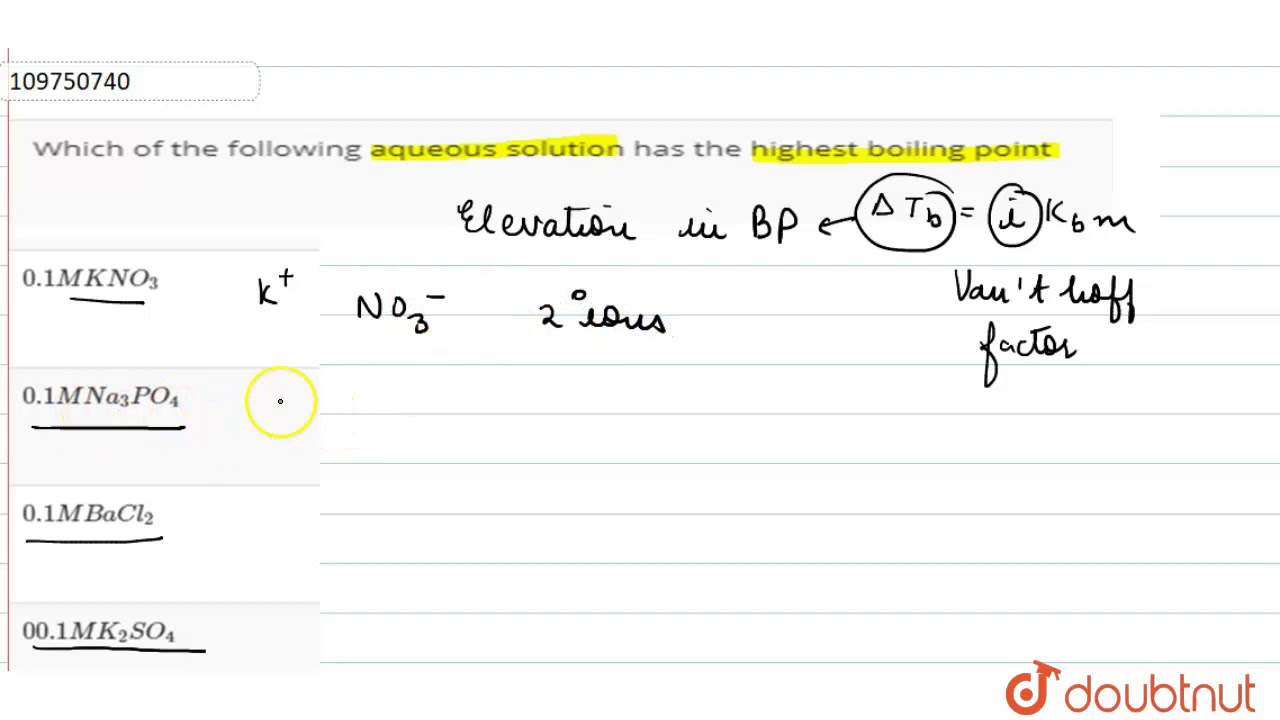 109750740
Which of the following aqueous solution has the highest boiling point
Elevation in BP ← ΔT_b = i K_b m
Van't hoff
factor
0.1MKNO₃
K⁺ NO₃⁻ 2 ions
0.1MNa₃PO₄
0.1MBaCl₂
00.1MK₂SO₄
doubtnut